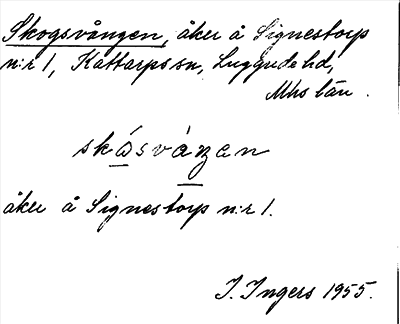 Skogsvången, åker å Signestorp
n:r 1, Kattarps sn, Luggude hd,
Mhs län.
skåsvåŋen
åker å Signestorp n:r 1.
I. Ingers 1955.